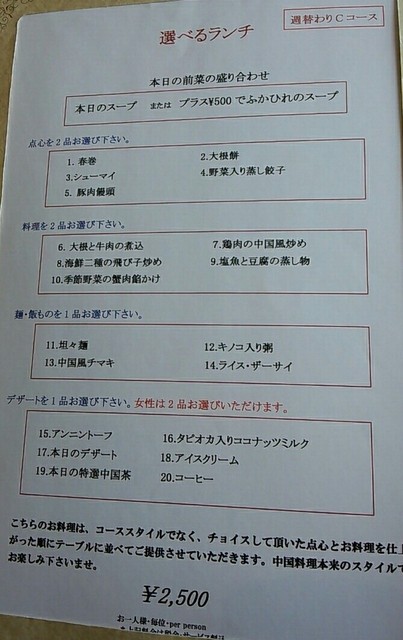 週替わりCコース
選べるランチ
本日の前菜の盛り合わせ
本日のスープ または プラス¥500でふかひれのスープ
点心を2品お選び下さい。
1. 春巻 2.大根餅
3.シューマイ 4.野菜入り蒸し餃子
5. 豚肉饅頭
料理を2品お選び下さい。
6. 大根と牛肉の煮込 7.鶏肉の中国風炒め
8.海鮮二種の飛び子炒め 9.塩魚と豆腐の蒸し物
10.季節野菜の蟹肉餡かけ
麺・飯ものを1品お選び下さい。
11.坦々麺 12.キノコ入り粥
13.中国風チマキ 14.ライス・ザーサイ
デザートを1品お選び下さい。女性は2品お選びいただけます。
15.アンニントーフ 16.タピオカ入りココナッツミルク
17.本日のデザート 18.アイスクリーム
19.本日の特選中国茶 20.コーヒー
こちらのお料理は、コーススタイルでなく、チョイスして頂いた点心とお料理を仕上
がった順にテーブルに並べてご提供させていただきます。中国料理本来のスタイルで
お楽しみ下さいませ。
¥2,500
お一人様・毎位・per person